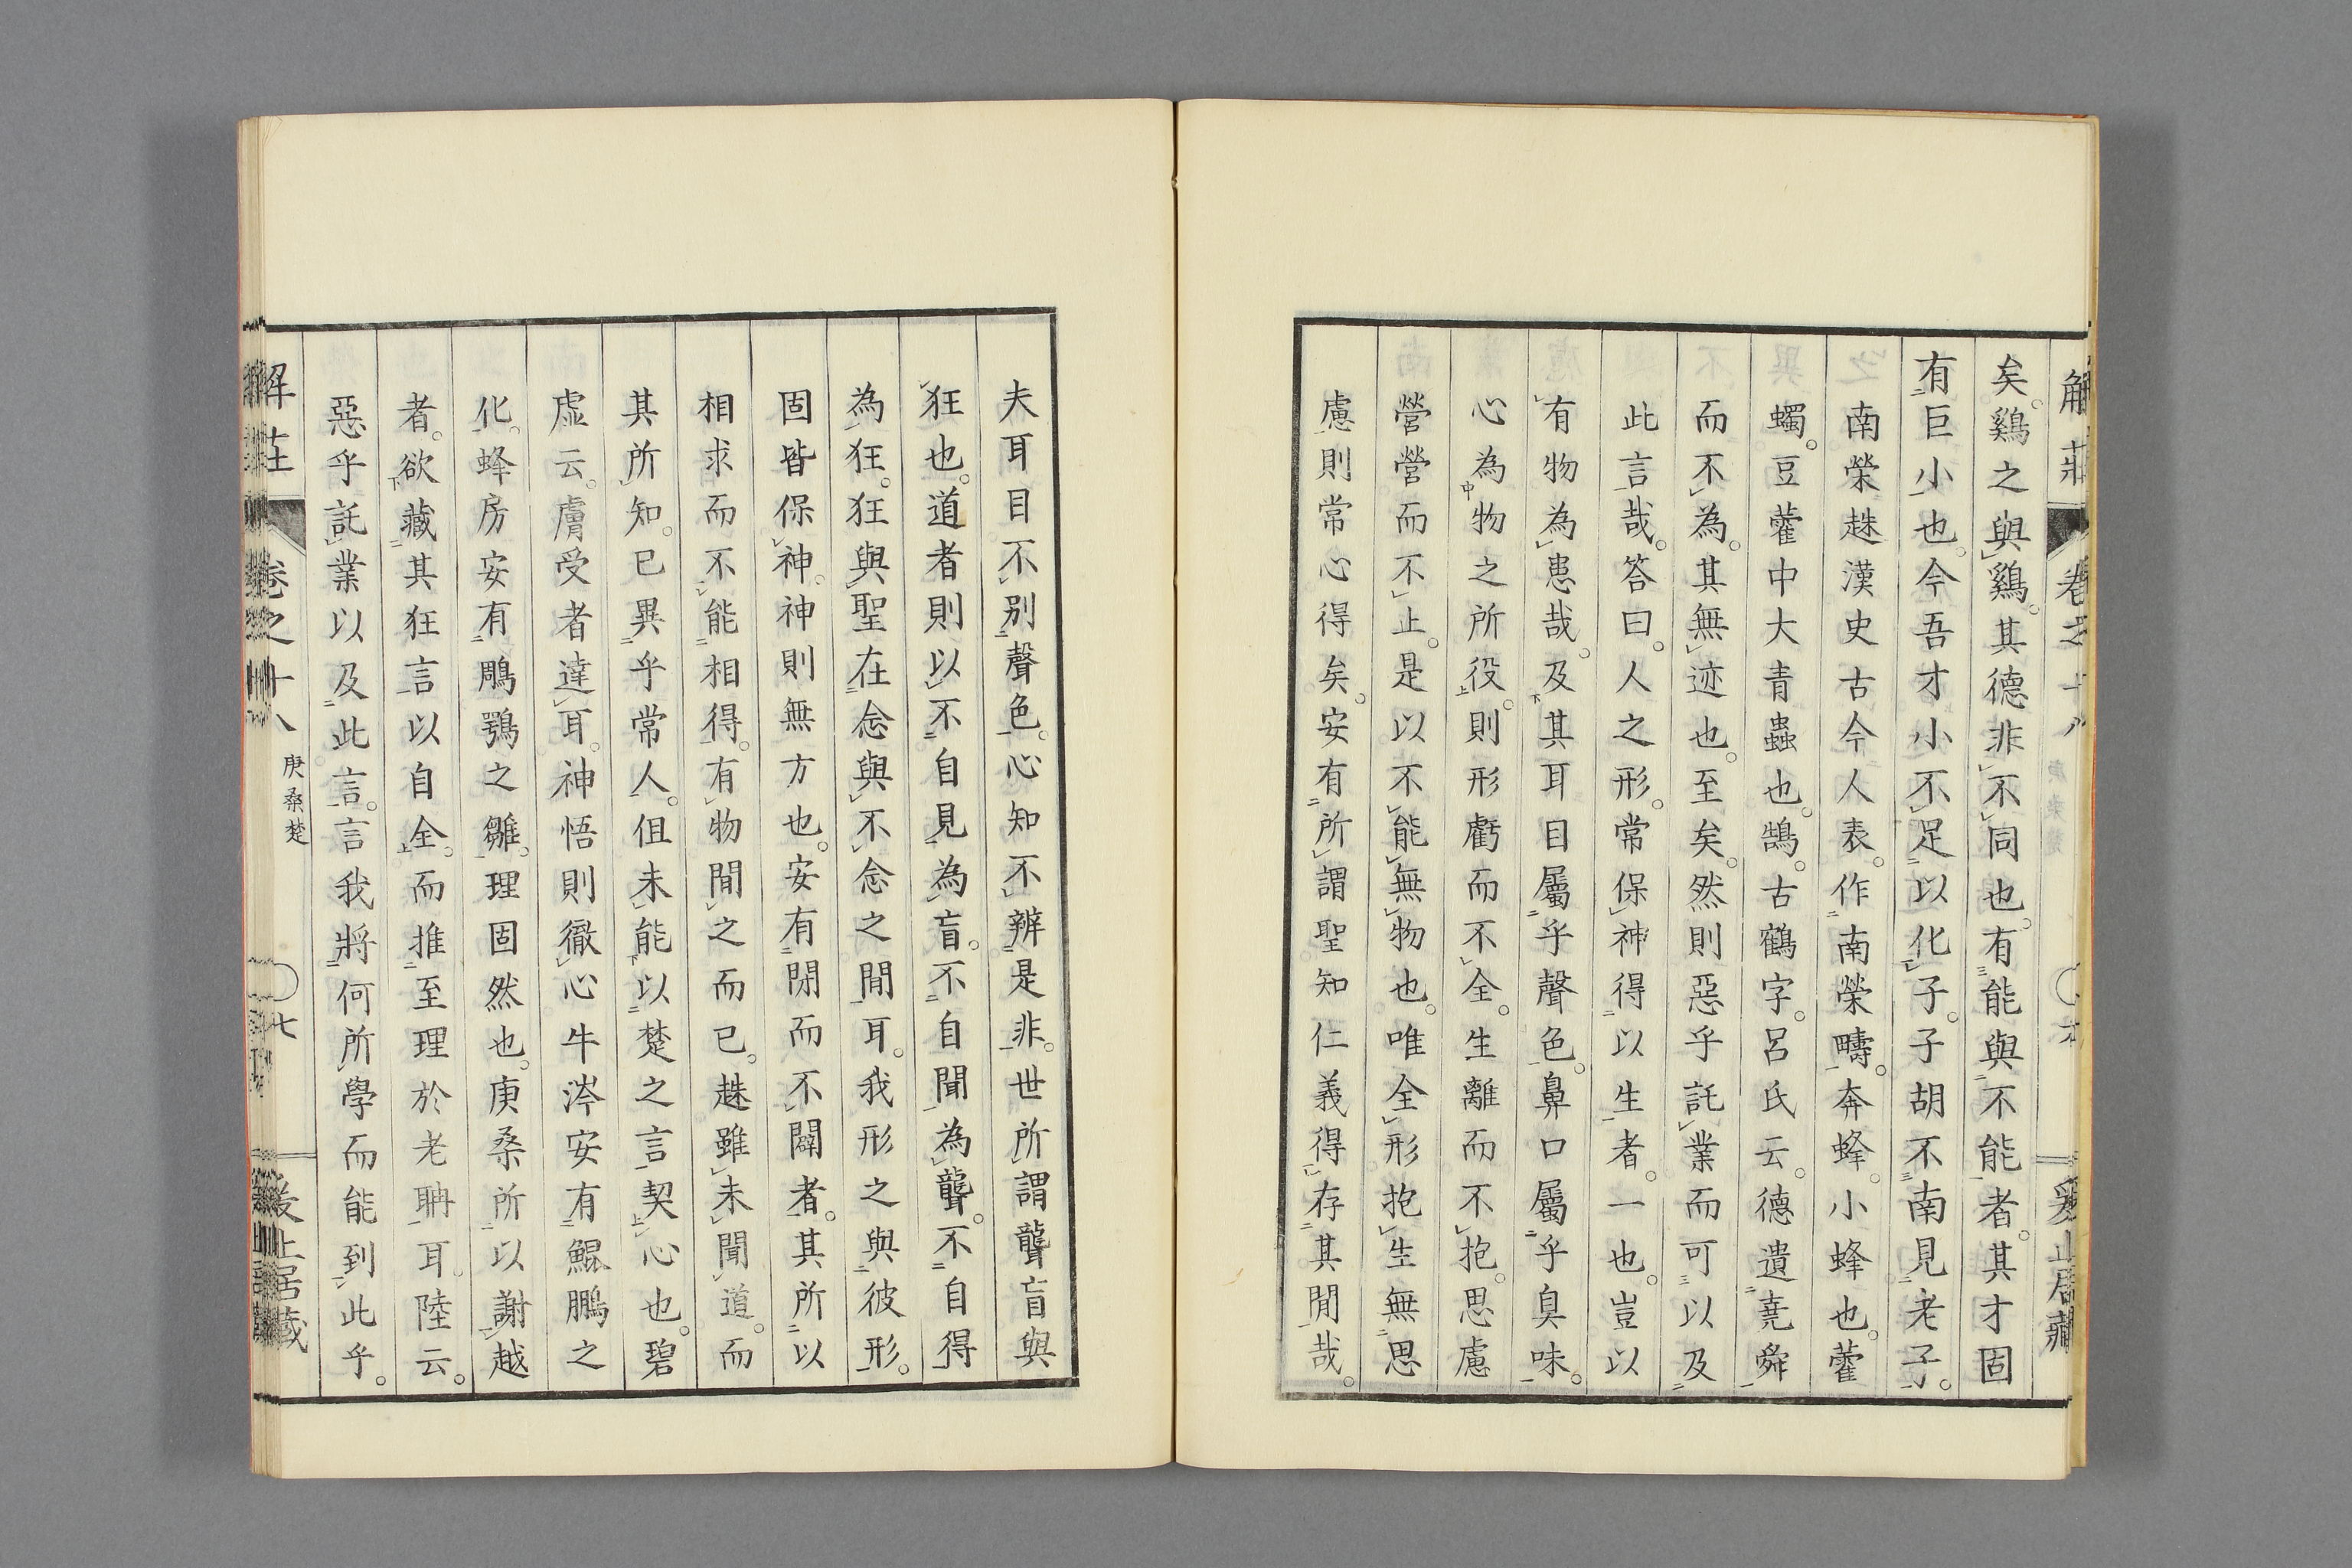 矣。鷄之與鷄。其德非不同也。有能與不能者。其才固
有巨小也。今吾才小不足以化子。子胡不南見老子。
南榮趎漢史古今人表。作南榮疇。奔蜂。小蜂也。藿
蠋。豆藿中大青蟲也。鵠。古鶴字。呂氏云。德遺堯舜
而不為。其無迹也。至矣。然則惡乎託業而可以及
此言哉。答曰。人之形。常保神得以生者。一也。豈以
有物為患哉。及其耳目屬乎聲色。鼻口屬乎臭味。
心為物之所役。則形虧而不全。生離而不抱。思慮
營營而不止。是以不能無物也。唯全形抱生無思
慮則常心得矣。安有所謂聖知仁義得存其間哉。
夫耳目不別聲色。心知不辨是非。世所謂聾盲與
狂也。道者則以不自見為盲。不自聞為聾。不自得
為狂。狂與聖在念與不念之間耳。我形之與彼形。
固皆保神。神則無方也。安有閉而不闢者。其所以
相求而不能相得。有物間之而已。趎雖未聞道。而
其所知。已異乎常人。但未能以楚之言契心也。碧
虛云。膚受者達耳。神悟則徹心。牛涔安有鯤鵬之
化。蜂房安有鵰鶚之雛。理固然也。庚桑所以謝越
者。欲藏其狂言以自全。而推至理於老聃耳。陸云。
惡乎託業以及此言。言我將何所學而能到此乎。
解莊 卷之十八 庚桑楚 〇七